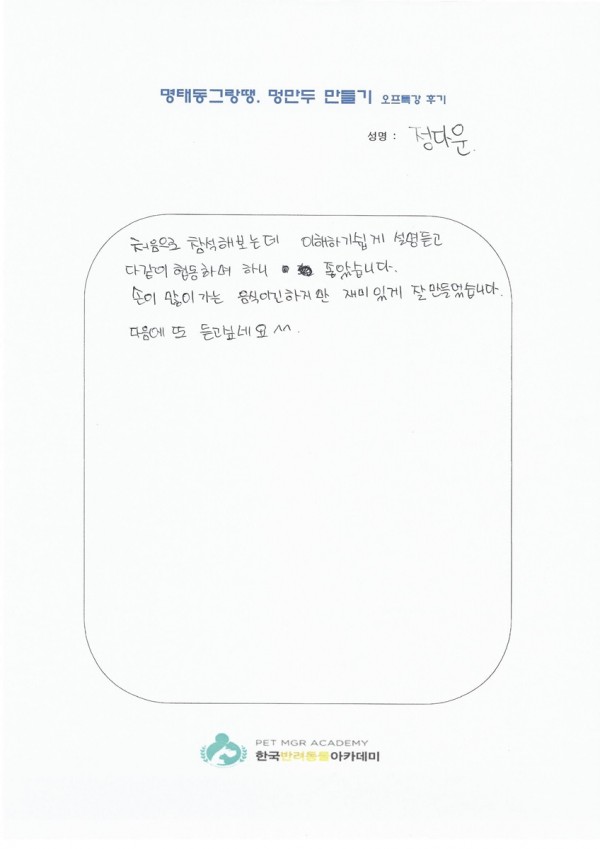 명태동그랑땡. 멍만두 만들기 오프특강 후기
성명 : 정다운
처음으로 참석해보는데 이해하기쉽게 설명듣고
다같이 협동하며 하니 좋았습니다.
손이 많이가는 음식이긴하지만 재미있게 잘만들었습니다.
다음에 또 듣고싶네요^^.
PET MGR ACADEMY
한국반려동물아카데미